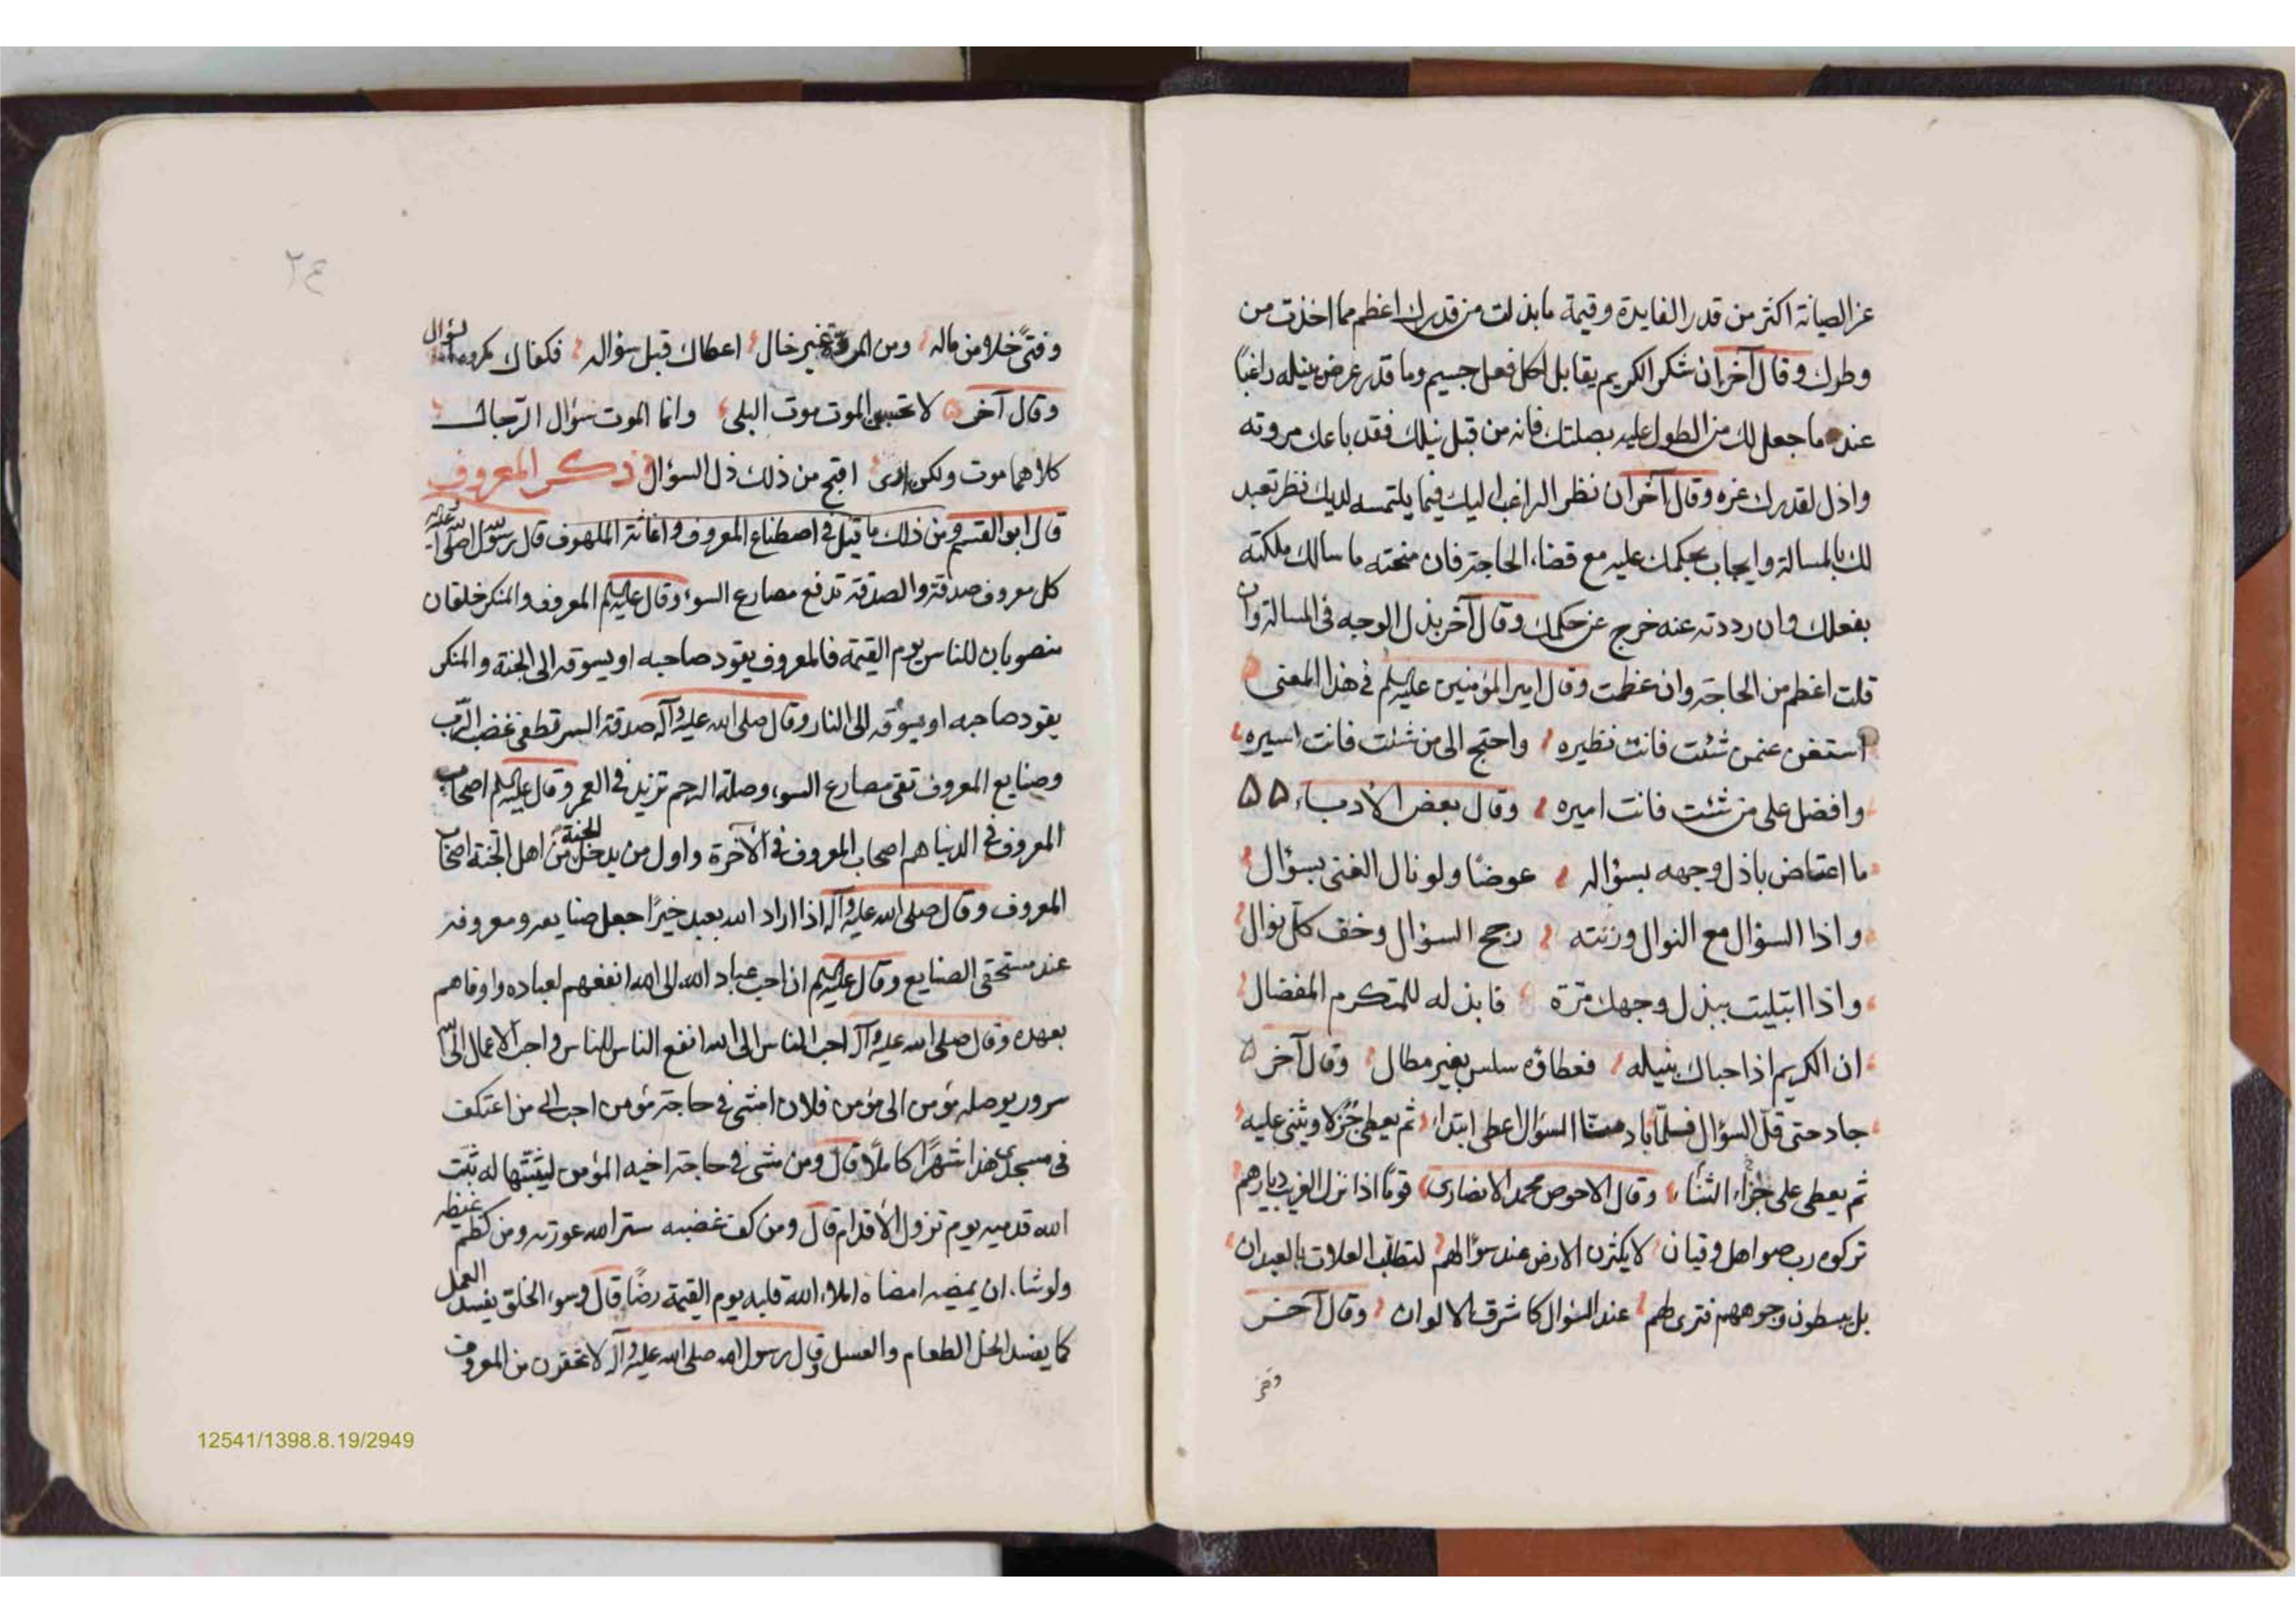 عز الصيانة اكثر من قدر الفايدة وقيمة ما بذلت من قدرك اعظم مما اخذت من
وطرك وقال آخر ان شكر الكريم يقابل كل فعل جسيم وما قدر عرض بنيله راغبًا
عند ما جعل لك من الطول عليه بصلتك فانه من قبل نيلك فقد باعك مروته
واذل لقدرك عزه وقال آخر ان نظر الراغب اليك فيما يلتمسه لديك نظر تعبد
لك بالمسالة وايجاب بحكمك عليه مع قضاء الحاجة فان منحته ما سالك ملكته
بفعلك وان رددته عنه خرج عن حكمك وقال آخر بذل الوجه فى المسالة وان
قلت اعظم من الحاجة وان عظمت وقال امير المؤمنين عليه السلم فى هذا المعنى
استغن عمن شئت فانت نظيره واحتج الى من شئت فانت اسيره
وافضل على من شئت فانت اميره وقال بعض الادباء
ما اعتاض باذل وجهه بسؤاله عوضًا ولو نال الغنى بسؤال
واذا السؤال مع النوال وزنته رجح السؤال وخف كل نوال
واذا ابتليت ببذل وجهك مرة فابذله للمتكرم المفضال
ان الكريم اذا حباك بنيله فعطاؤه سلس بغير مطال وقال آخر
جاد حتى قل السؤال فلما باد منا السؤال اعطى ابتداء ثم يعطى جزلا ويثنى عليه
ثم يعطى على جزاء الثناء وقال الاحوص محمد الانصارى قومًا اذا نزل الغريب بديارهم
تركوه رب صواهل وقيان لا ينكثون الارض عند سؤالهم لتطلب العلات بالعيدان
بل يبسطون وجوههم فترى لهم عند السؤال كاشرق الالوان وقال آخر
وفتىً خلا من ماله ومن المروة غير خال اعطاك قبل سؤاله فكفاك مكروه السؤال
وقال آخر لا تحسبن الموت موت البلى وانما الموت سؤال الرجال
كلاهما موت ولكن ذى اقبح من ذلك ذل السؤال ذكر المعروف
قال ابو القسم ومن ذلك ما قيل فى اصطناع المعروف واغاثة الملهوف قال رسول الله صلى الله عليه
كل معروف صدقة والصدقة تدفع مصارع السوء وقال عليه السلم المعروف والمنكر خلقان
منصوبان للناس يوم القيمة فالمعروف يقود صاحبه او يسوقه الى الجنة والمنكر
يقود صاحبه او يسوقه الى النار وقال صلى الله عليه وآله صدقة السر تطفى غضب الرب
وصنايع المعروف تقى مصارع السوء وصلة الرحم تزيد فى العمر وقال عليه السلم اصحاب
المعروف فى الدنيا هم اصحاب المعروف فى الآخرة واول من يدخل الجنة من اهل الجنة اصحاب
المعروف وقال صلى الله عليه وآله اذا اراد الله بعبد خيرًا جعل صنايعه ومعروفه
عند مستحقى الصنايع وقال عليه السلم ان احب عباد الله الى الله انفعهم لعباده واوفاهم
بعهده وقال صلى الله عليه وآله احب الناس الى الله انفع الناس للناس واحب الاعمال الى الله
سرور يوصله مؤمن الى مؤمن فلان امشى فى حاجة مؤمن احب الى من اعتكف
فى مسجدى هذا شهرًا كاملًا قال ومن مشى فى حاجة اخيه المؤمن ليثبتها له ثبت
الله قدميه يوم تزول الاقدام قال ومن كف غضبه ستر الله عورته ومن كظم غيظه
ولو شاء ان يمضيه امضاه املاء الله قلبه يوم القيمة رضًا قال وسوء الخلق يفسد العمل
كما يفسد الخل الطعام والعسل وقال رسول الله صلى الله عليه وآله لا تحقرن من المعروف
12541/1398.8.19/2949